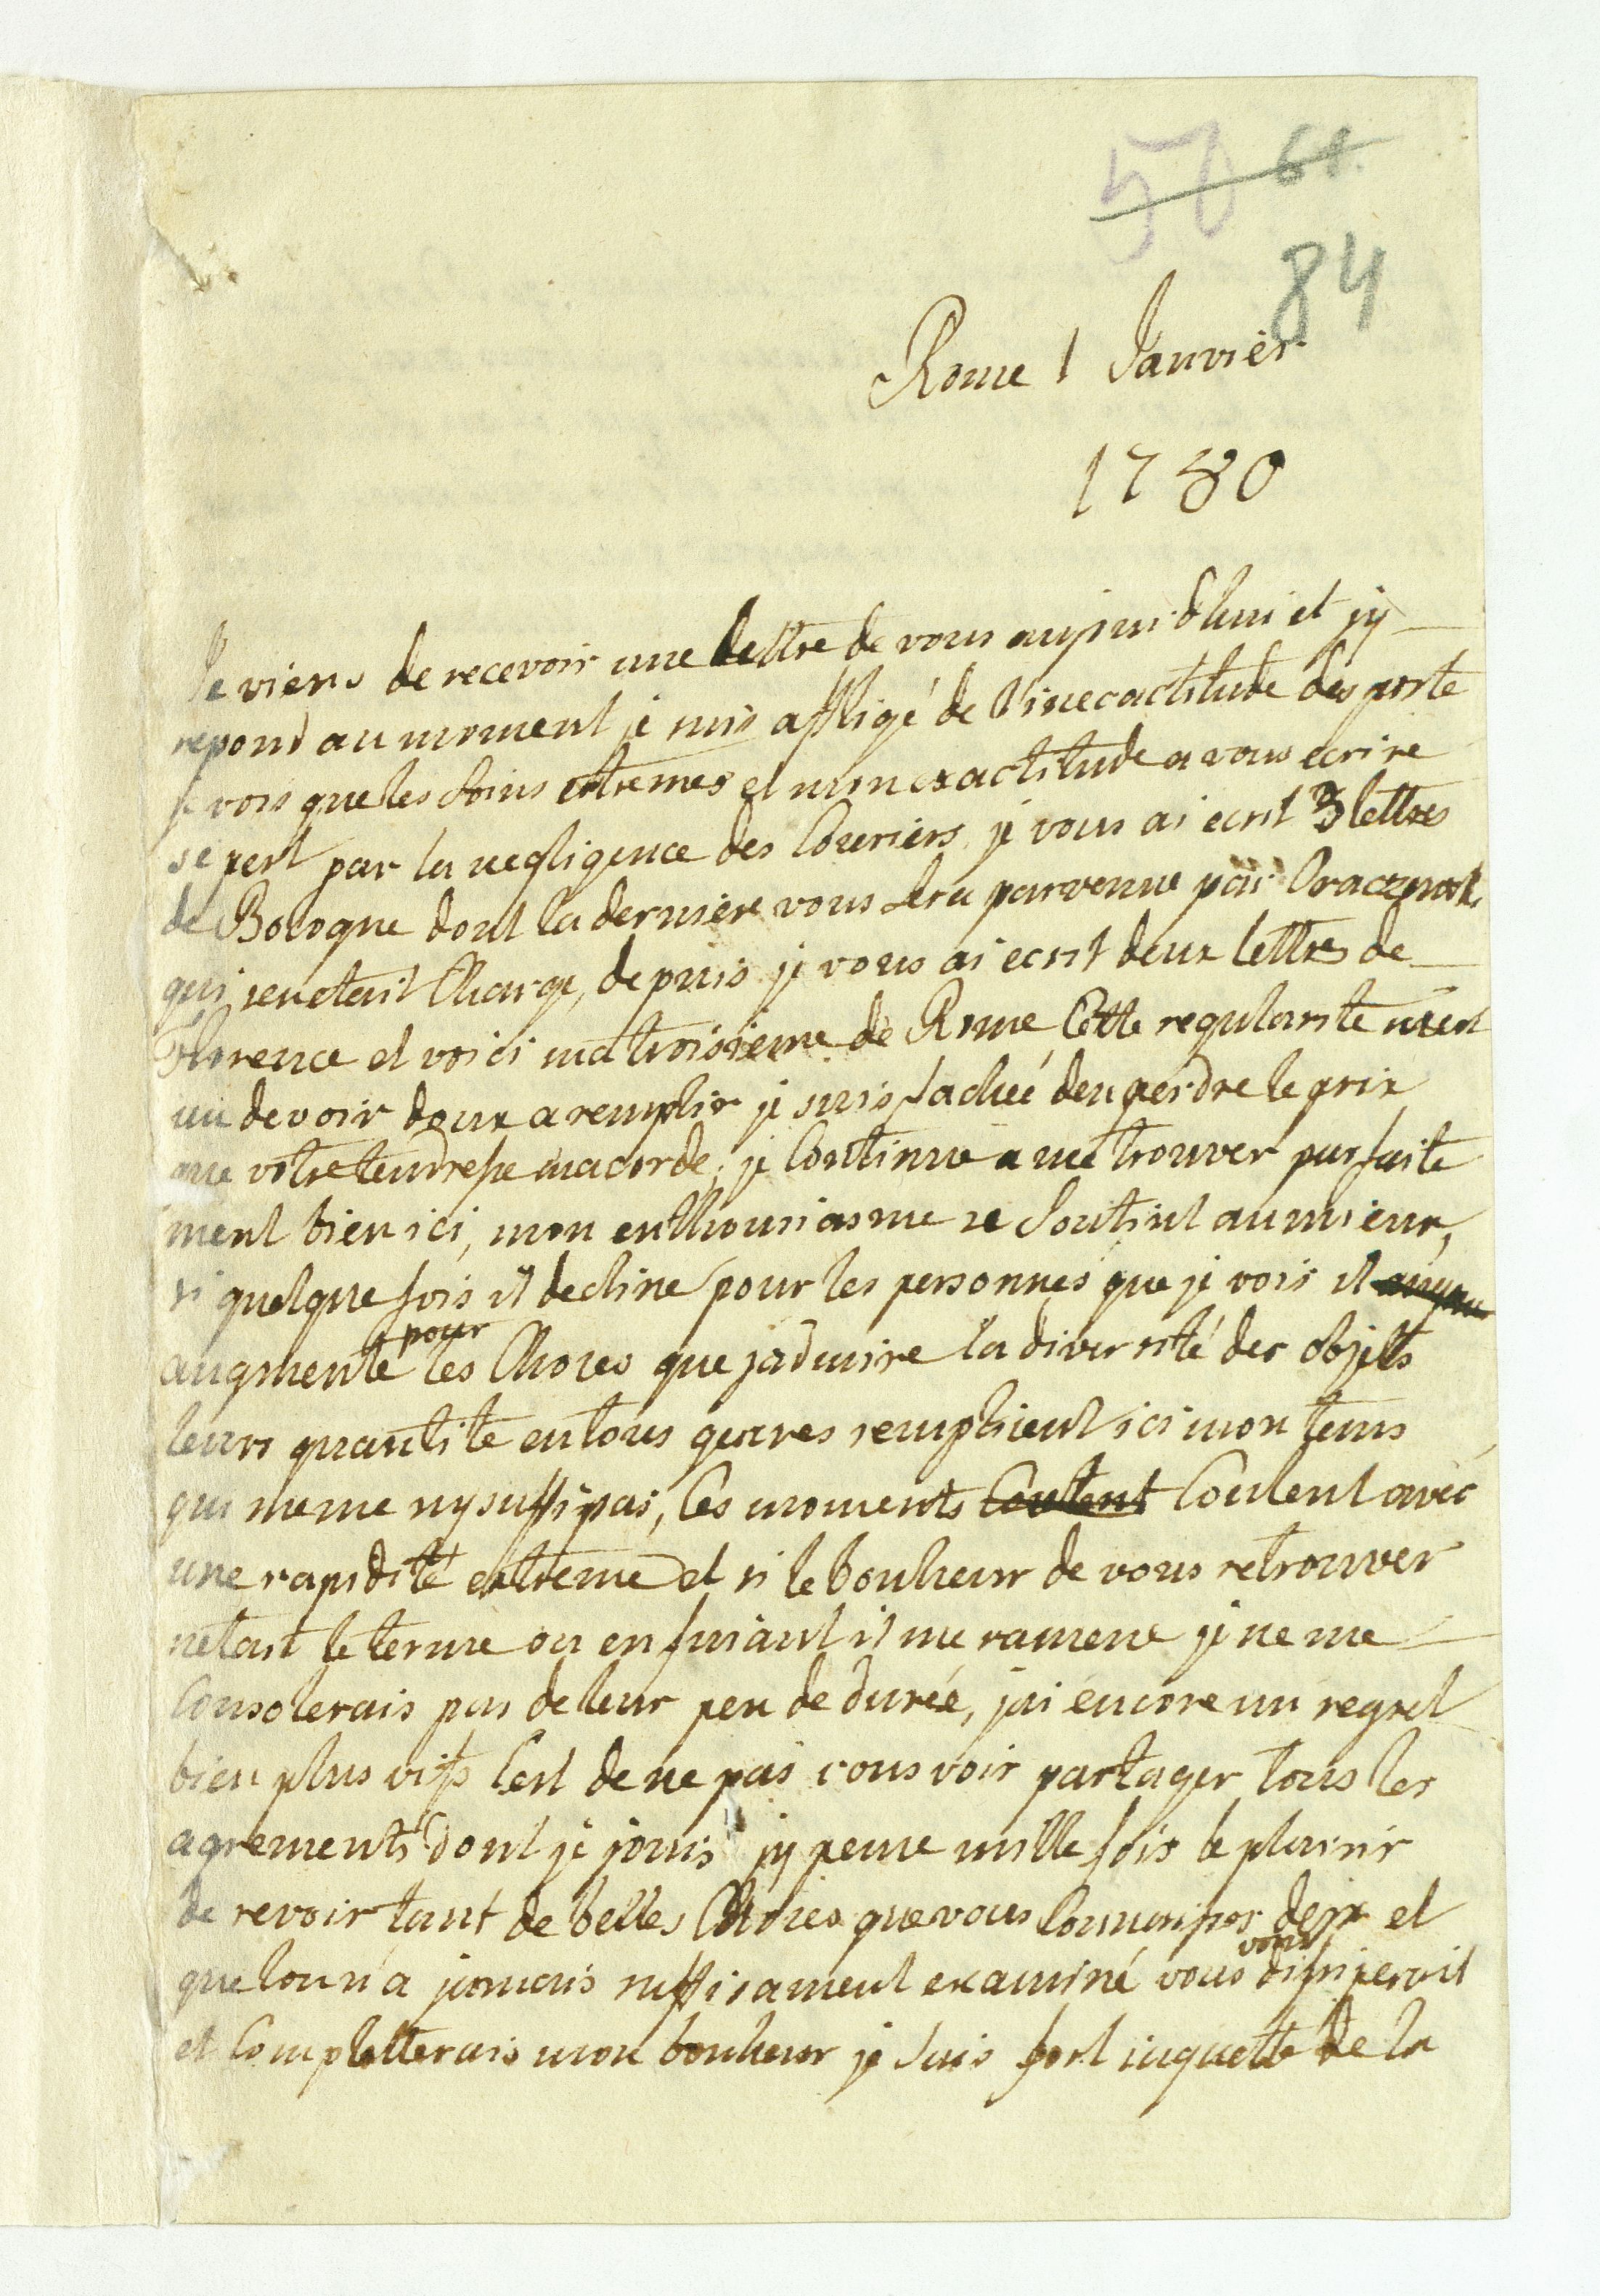 50 61.
84
Rome 1 Janvier
1780
Je viens de recevoir une lettre de vous aujourdhui et jy
repond au moment je suis affligé de l'inexactitude des poste
je vois que les soins extremes et mon exactitude a vous ecrire
se pert par la negligence des Couriers, je vous ai ecrit 3 lettres
de Bologne dont la derniere vous sera parvenue par
qui sen etait Charge, depuis je vous ai ecrit deux lettres de
Florence et voici ma troisieme de Rome Cette regularite mest
un devoir doux a remplir je suis fachée den perdre le prix
que votre tendresse macorde; je Continue a me trouver parfaite
ment bien ici, mon enthousiasme se soutient au mieux,
si quelque fois il decline pour les personnes que je vois il augme
augmente pour les Choses que jadmire la diversité des objets
leurs quantite en tous genres remplisent ici mon tems
qui meme ny suffi pas, les moments Coutent Coulent avec
une rapidité extreme et si le bonheur de vous retrouver
netait le terme ou en fuiant il me ramene je ne me
Consolerais pas de leur peu de durée, jai encore un regret
bien plus vifs Cest de ne pas vous voir partager tous les
agrements dont je jouis jy pense mille fois le plaisir
de revoir tant de belles Choses que vous Connoisses deja et
que lon n'a jamais suffisament examiné vous vous dissiperait
et Completterais mon bonheur je suis fort inquette de la